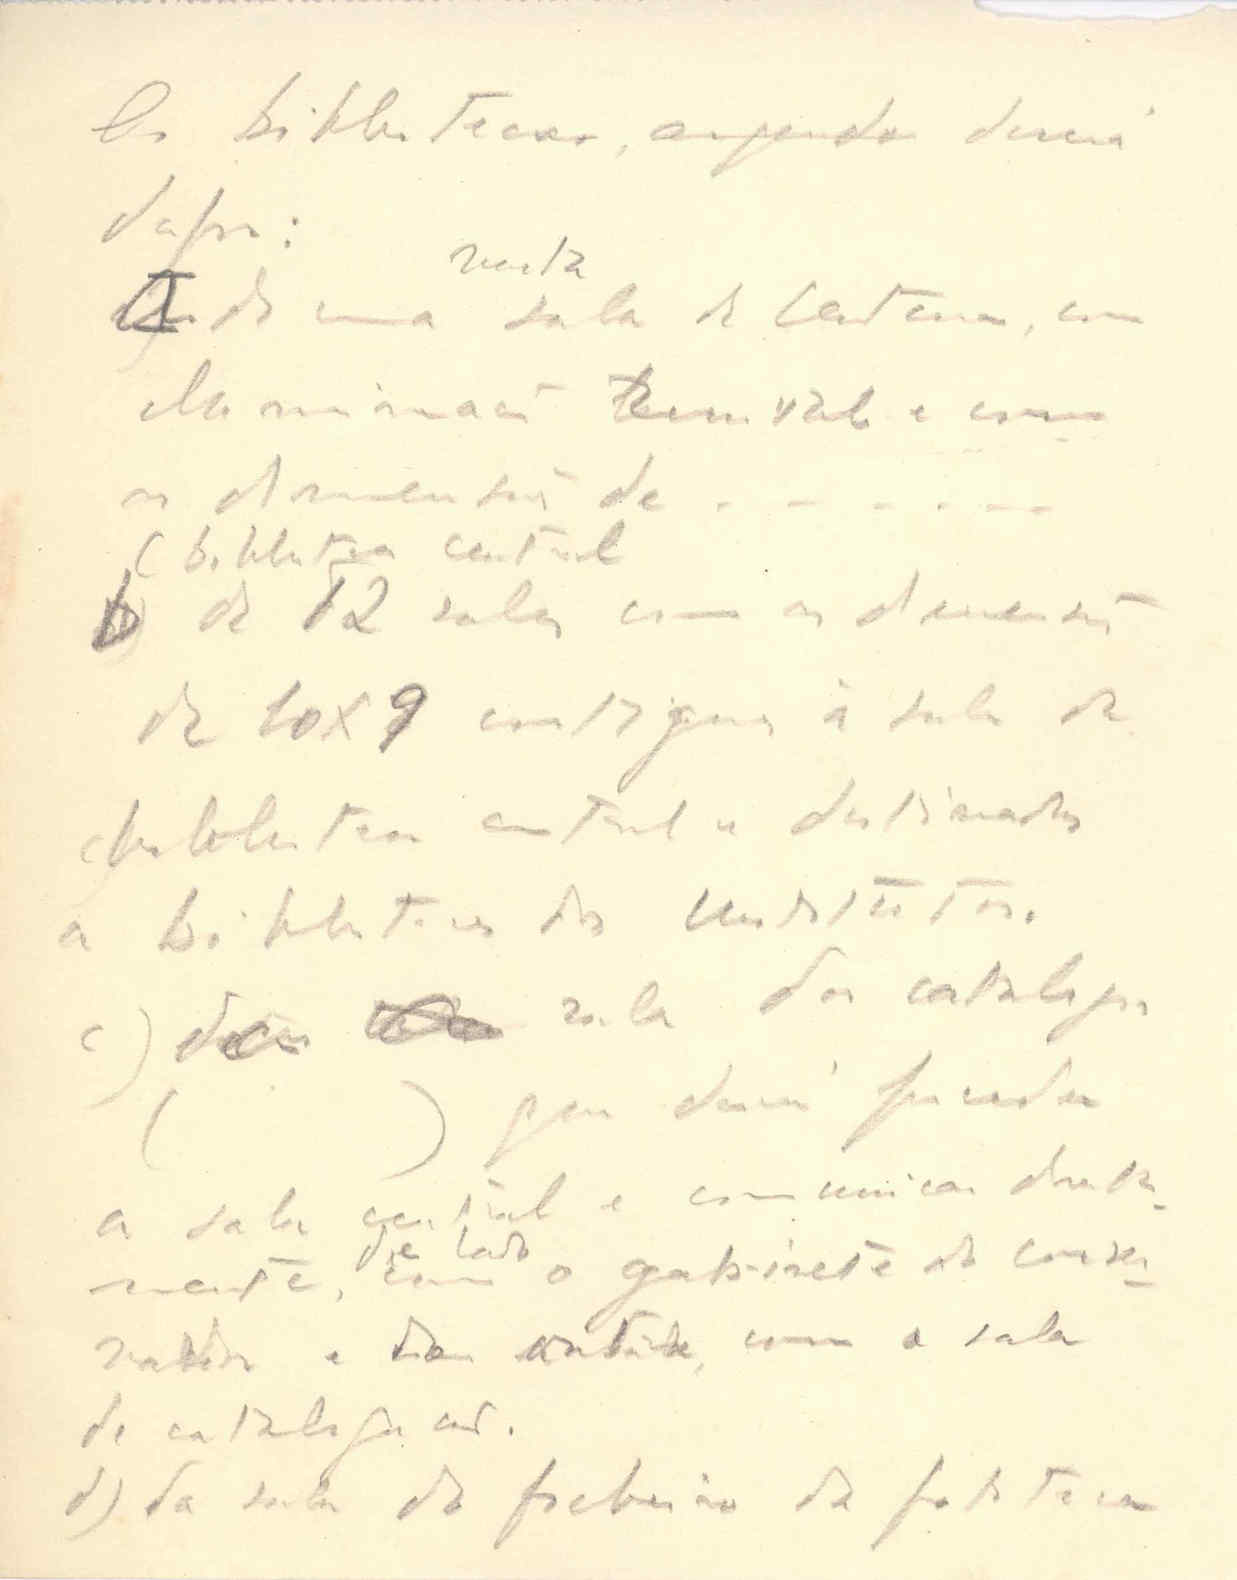 As bibliotecas, deverá
dispor:
vasta
a) de uma sala de leitura, com
iluminação e com
as dimensões de - - - - - -
(biblioteca central
b) de 12 salas com as dimensões
de 10x9 contiguas à sala da
biblioteca central e destinadas
a bibliotecas dos Institutos.
c) da sala dos catálogos
( ) que deverá preceder
a sala central e comunicar direta-
de lado
mente, com o gabinete do conser-
vador e do outro, com a sala
de catalogação.
d) da sala do ficheiro da fototeca